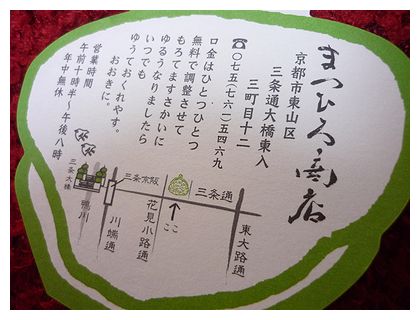 まつひろ商店
京都市東山区
三条通大橋東入
三町目十二
☎〇七五(七六一)五四六九
口金はひとつひとつ
無料で調整させて
もろてますさかいに
ゆるうなりましたら
いつでも
ゆうておくれやす。
おおきに。
営業時間
午前十時半〜午後八時
年中無休
三条大橋
鴨川
川端通
三条京阪
花見小路通
三条通
ここ
東大路通